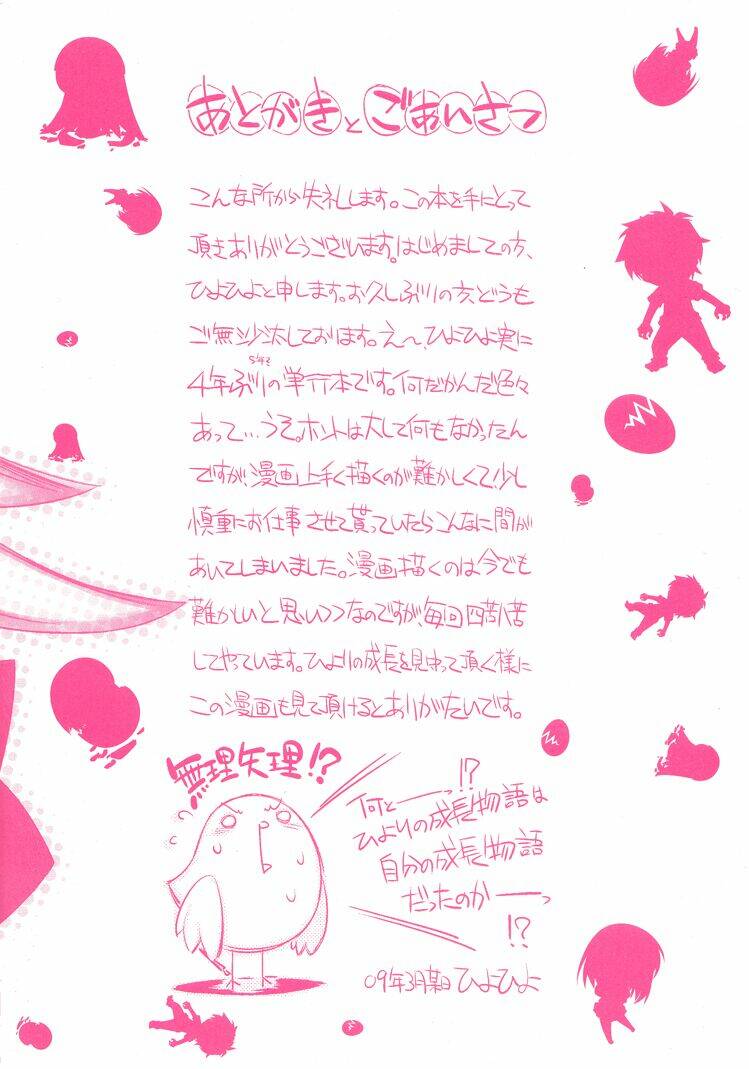 あとがきとごあいさつ
こんな所から失礼します。この本を手にとって
頂きありがとうございます。はじめましての方、
ひよひよと申します。お久しぶりの方、どうも
ご無沙汰しております。え〜、ひよひよ実に
4年ぶりの単行本です。何だかんだ色々
あって…うそ。ホントは大して何もなかったん
ですが、漫画上手く描くのが難かしくて、少し
慎重にお仕事させて貰っていたらこんなに間が
あいてしまいました。漫画描くのは今でも
難かしいと思いつつなのですが、毎回四苦八苦
してやっています。ひよりの成長を見守って頂く様に
この漫画も見て頂けるとありがたいです。
無理矢理!?
何と――っ!?
ひよりの成長物語は
自分の成長物語
だったのか――っ
!?
09年3月某日 ひよひよ